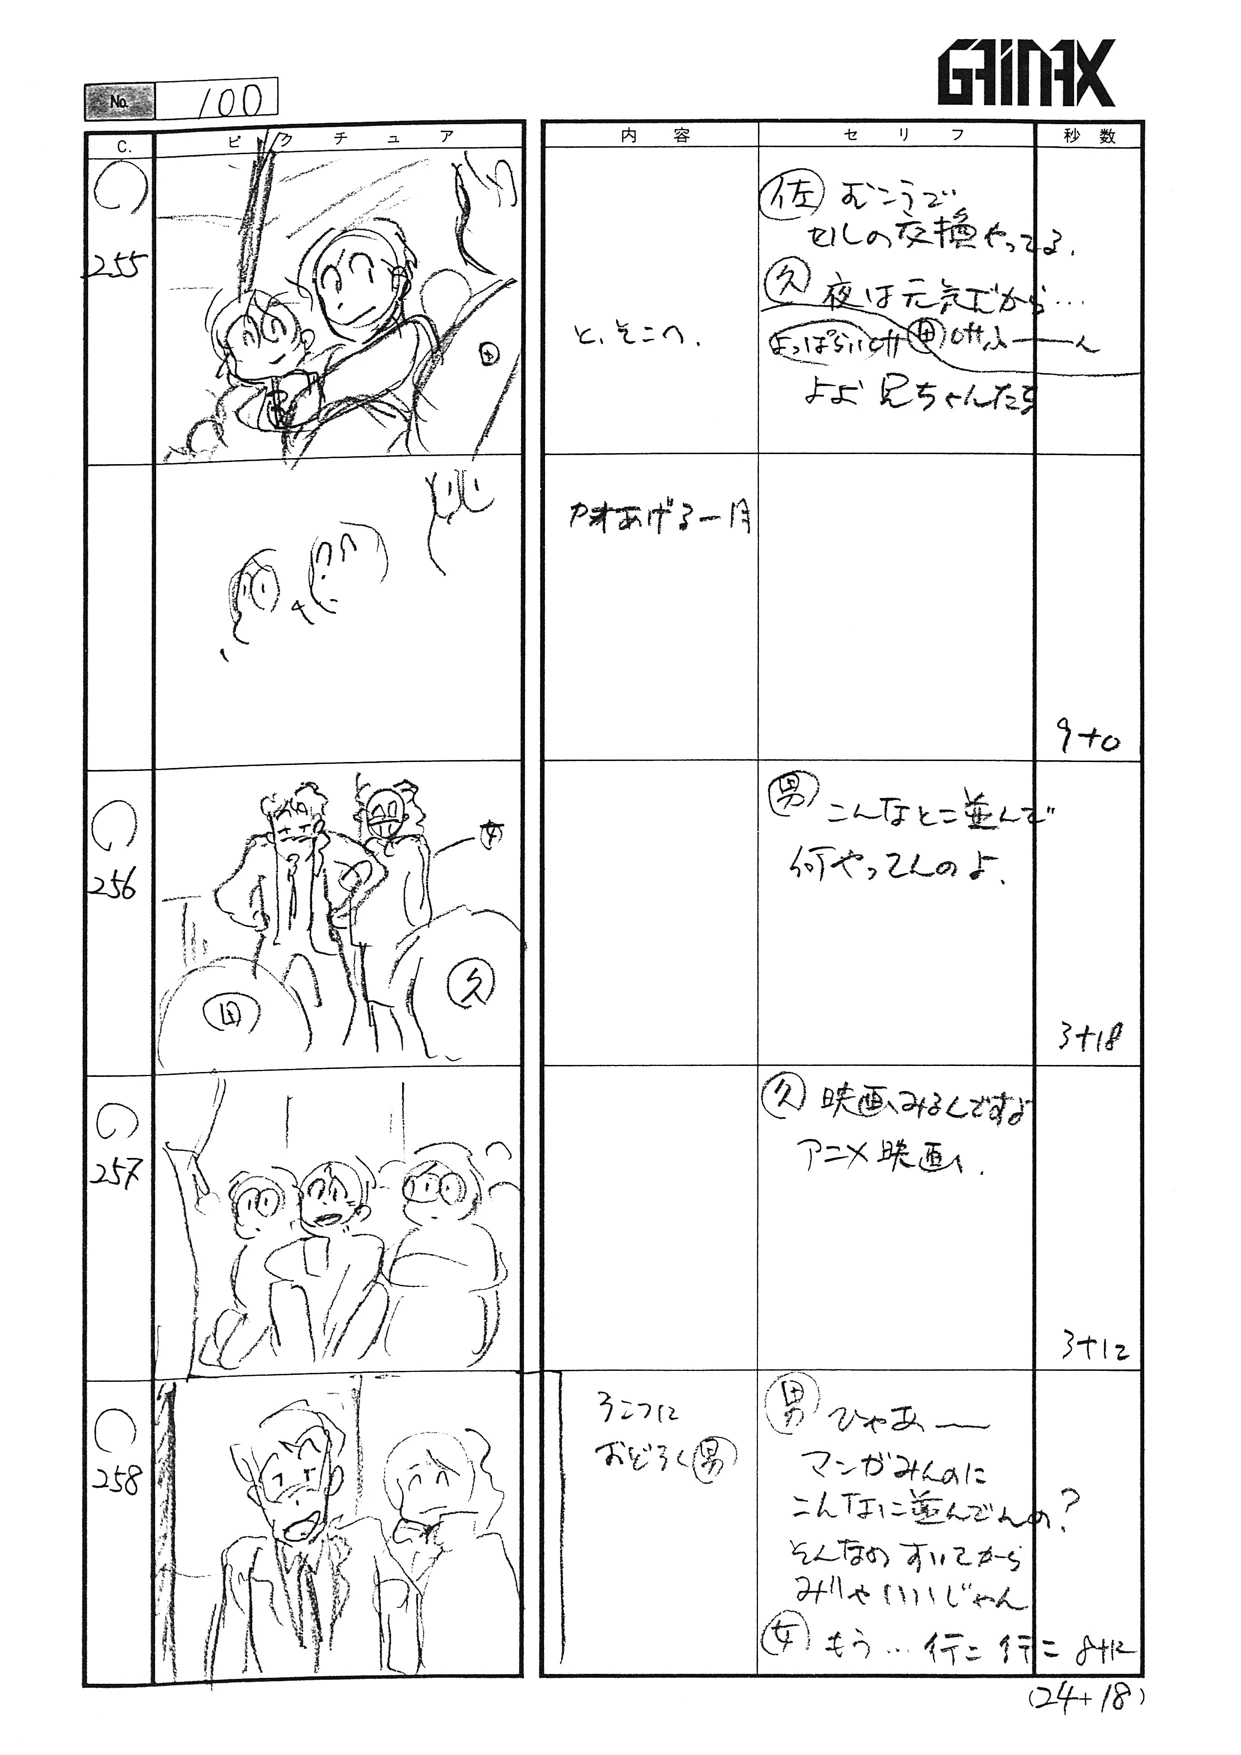 GAINAX
No. 100
C. ピクチュア 内容 セリフ 秒数
255
と、そこへ、
佐 むこうで
セルの交換やってる、
久 夜は元気だから…
よっぱらい
よぉ 兄ちゃんたち
カオあげる一同
9+0
256
女
田
久
男 こんなとこ並んで
何やってんのよ、
3+18
257
久 映画みるんですよ
アニメ映画、
3+12
258
おどろく男
男 ひゃあ――
マンガみんのに
こんなに並んでんの?
そんなの すいてから
みじゃいいじゃん
女 もう… 行こ 行こ
8+12
(24+18)